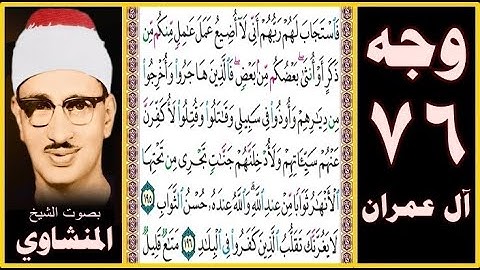 وجه
٧٦
آل عمران
فَٱسْتَجَابَ لَهُمْ رَبُّهُمْ أَنِّى لَآ أُضِيعُ عَمَلَ عَٰمِلٍ مِّنكُم مِّن
ذَكَرٍ أَوْ أُنثَىٰ بَعْضُكُم مِّنۢ بَعْضٍ فَٱلَّذِينَ هَاجَرُوا۟ وَأُخْرِجُوا۟
مِن دِيَٰرِهِمْ وَأُوذُوا۟ فِى سَبِيلِى وَقَٰتَلُوا۟ وَقُتِلُوا۟ لَأُكَفِّرَنَّ
عَنْهُمْ سَيِّـَٔاتِهِمْ وَلَأُدْخِلَنَّهُمْ جَنَّٰتٍ تَجْرِى مِن تَحْتِهَا
ٱلْأَنْهَٰرُ ثَوَابًا مِّنْ عِندِ ٱللَّهِ وَٱللَّهُ عِندَهُۥ حُسْنُ ٱلثَّوَابِ ١٩٥
لَا يَغُرَّنَّكَ تَقَلُّبُ ٱلَّذِينَ كَفَرُوا۟ فِى ٱلْبِلَٰدِ ١٩٦ مَتَٰعٌ قَلِيلٌ
بصوت الشيخ
المنشاوي